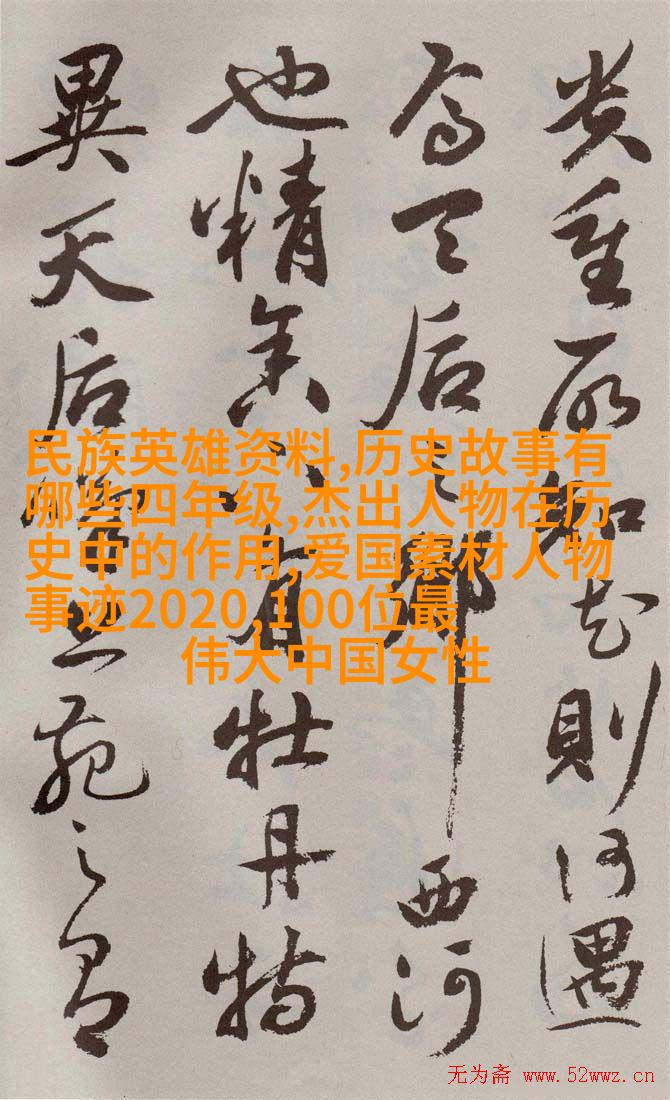 貴重所知花則何遇
焉天后之鄉西河
也精舍下有牡丹特
異天后上苑之有
民族英雄资料,历史故事有
哪些四年级,杰出人物在历
史中的作用,爱国素材人物
事迹2020,100位最
伟大中国女性
无为斋 www.52wwz.cn